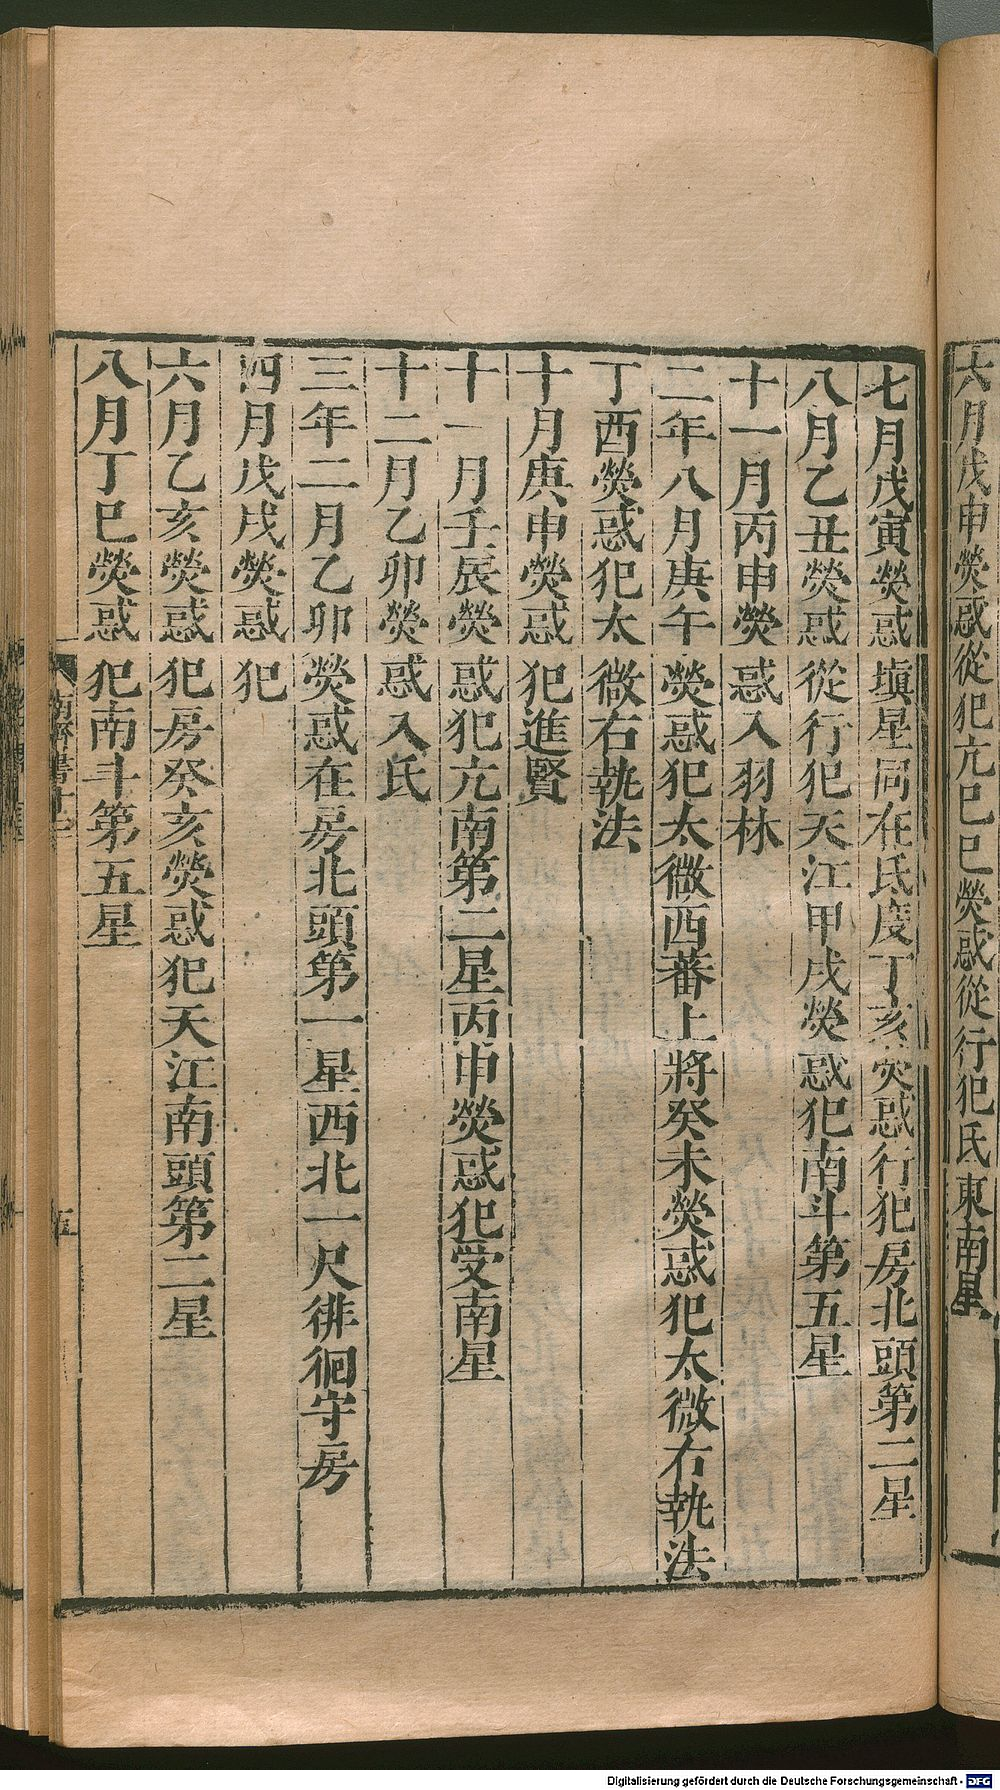 六月戊申熒惑從犯亢己巳熒惑從行犯氐東南星
七月戊寅熒惑塡星同在氐度丁亥熒惑行犯房北頭第二星
八月乙丑熒惑從行犯天江甲戌熒惑犯南斗第五星
十一月丙申熒惑入羽林
二年八月庚午熒惑犯太微西蕃上將癸未熒惑犯太微右執法
丁酉熒惑犯太微右執法
十月庚申熒惑犯進賢
十一月壬辰熒惑犯亢南第二星丙申熒惑犯受南星
十二月乙卯熒惑入氐
三年二月乙卯熒惑在房北頭第一星西北一尺徘徊守房
四月戊戌熒惑犯
六月乙亥熒惑犯房癸亥熒惑犯天江南頭第二星
八月丁巳熒惑犯南斗第五星
南齊書十三
五
Digitalisierung gefördert durch die Deutsche Forschungsgemeinschaft - DFG